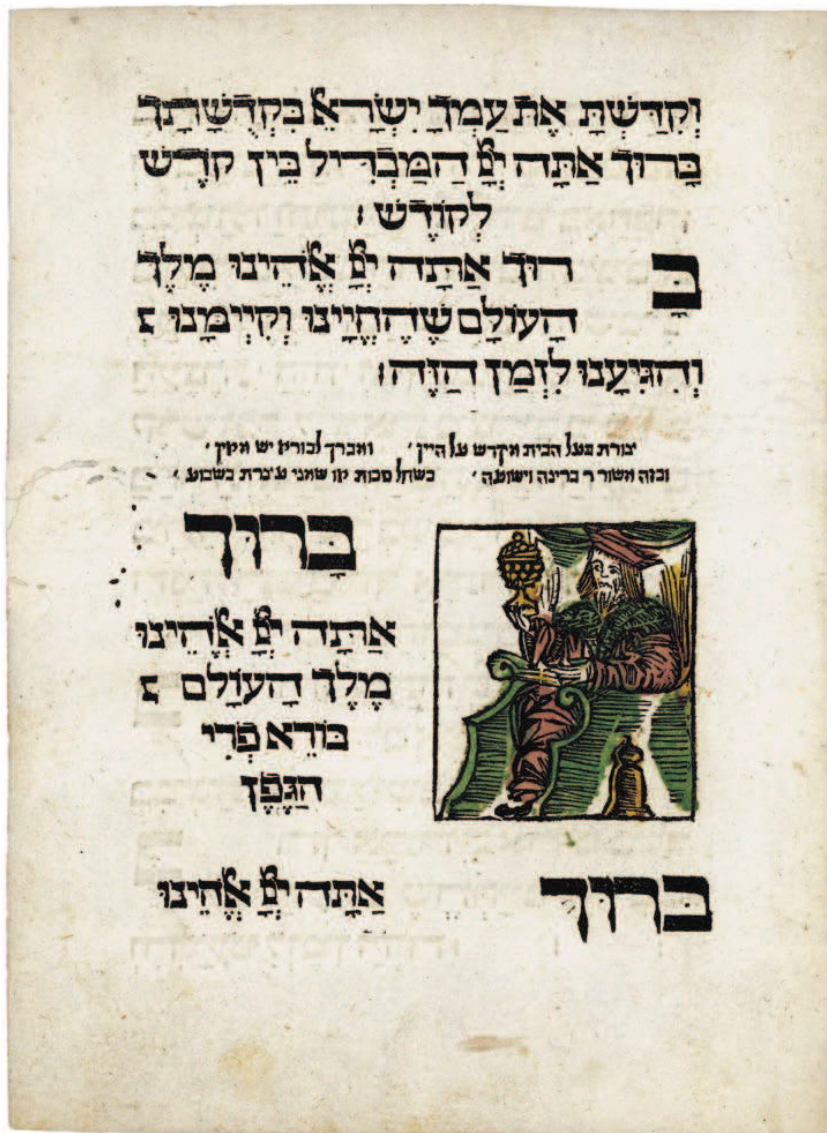 וְקִדַּשְׁתָּ אֶת עַמְךָ יִשְׂרָאֵל בִּקְדֻשָּׁתָךְ
בָּרוּךְ אַתָּה יְיָ הַמַּבְדִּיל בֵּין קֹדֶשׁ
לְקוֹדֶשׁ :
בָּרוּךְ אַתָּה יְיָ אֱלֹהֵינוּ מֶלֶךְ
הָעוֹלָם שֶׁהֶחֱיָינוּ וְקִיְּימָנוּ
וְהִגִּיעָנוּ לִזְמַן הַזֶּה :
צורת בעל הבית מקדש על היין ׳ ומברך לבורא יש מאין ׳
ובזה משורר ברינה וישועה ׳ כשחל סכות או שמני עצרת בשבוע ׳
בָּרוּךְ
אַתָּה יְיָ אֱלֹהֵינוּ
מֶלֶךְ הָעוֹלָם
בּוֹרֵא פְּרִי
הַגֶּפֶן
ברוך אַתָּה יְיָ אֱלֹהֵינוּ